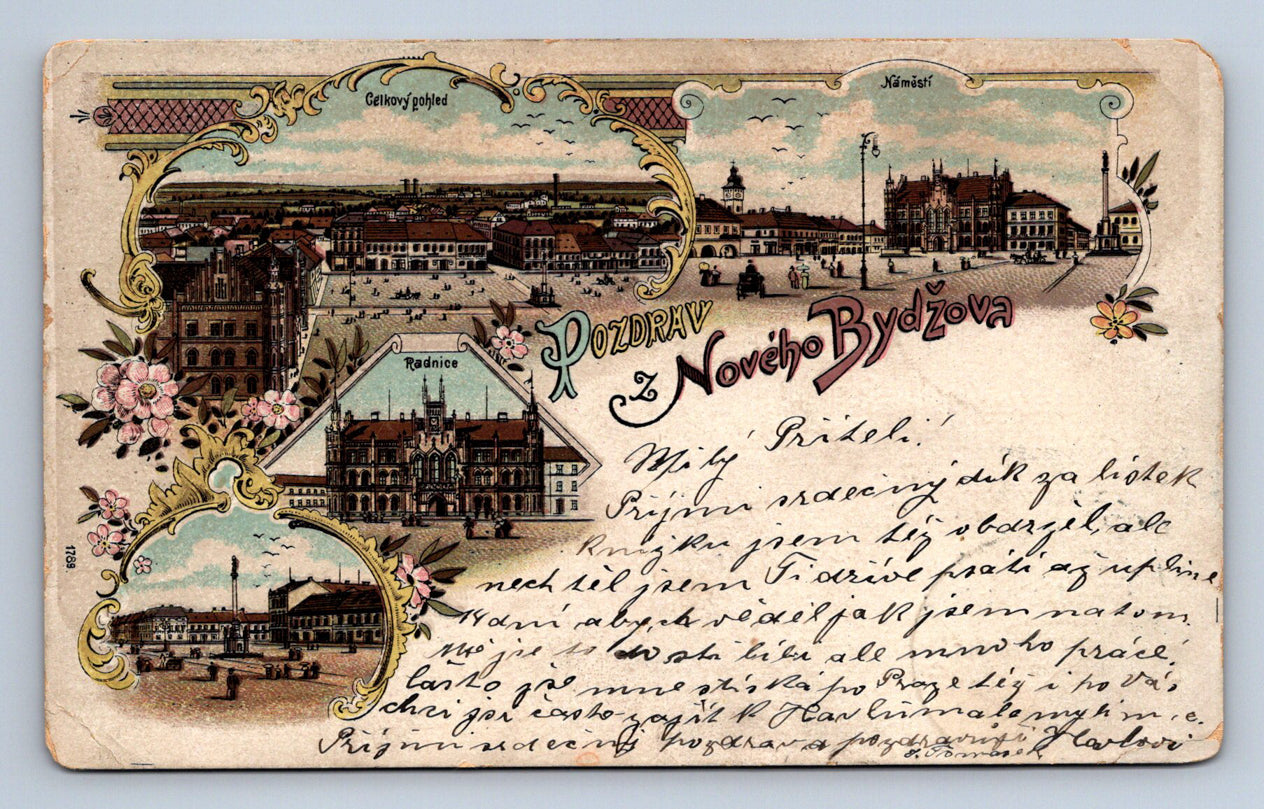 Celkový pohled
Náměstí
Pozdrav
z Nového Bydžova
Radnice
1769.
Milý Příteli!
Prijmi srdečný dík za lístek
knížku jsem též obdržel, ale
nechtěl jsem Ti dříve psáti až upline
pár dní abych věděl jak jsem na tom.
Mě se to dosti líbí ale mnoho práce,
často
mne stíská po Praze též i po Vás
chtěl často zajít k Havlům ale myslím
Prijmi srdečný pozdrav a pozdravuj Havlovi
J. Tomášek